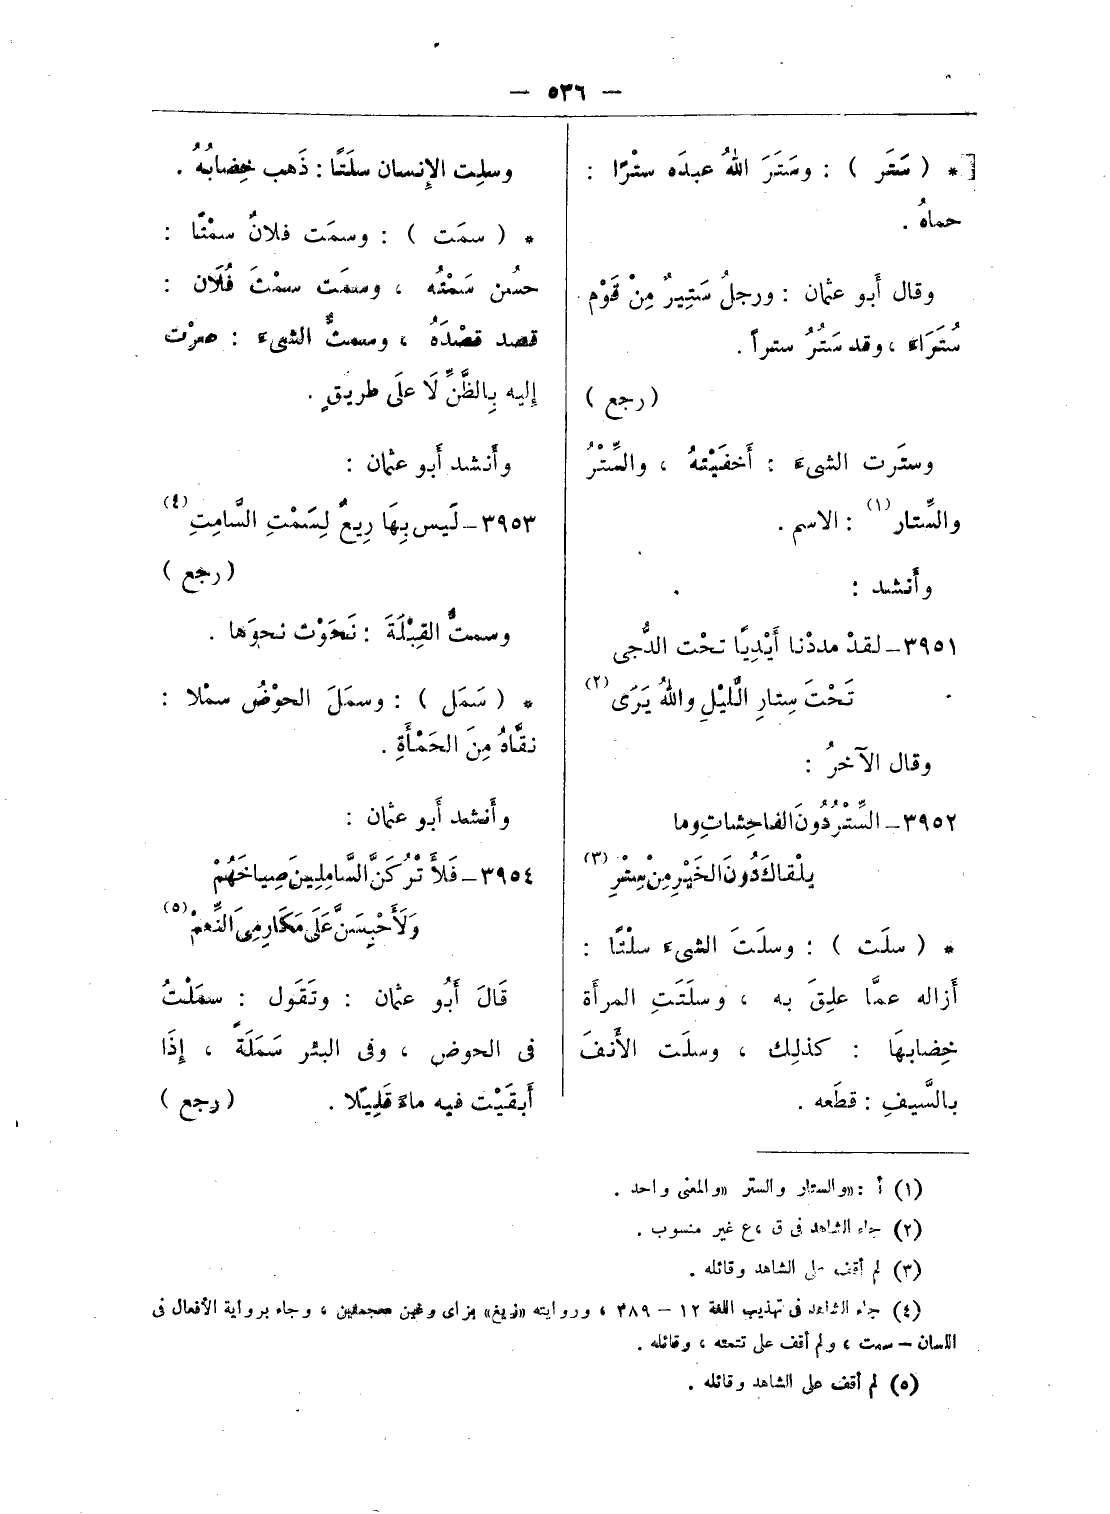 — ٥٣٦ —
[ * ( سَتَر ) : وسَتَرَ اللهُ عبدَه ستْرًا :
حماهُ .
وقال أَبو عثمان : ورجلُ سَتِيرٌ مِنْ قَوْم
سُتَرَاءَ ، وقد سَتُرُ ستراً .
( رجع )
وستَرت الشىءَ : أَخفَيْتهُ ، والسِّتْرُ
والسِّتار (١) : الاسم .
وأَنشد :
٣٩٥١ – لقدْ مددْنا أَيْدِيًا تحْت الدُّجى
تَحْتَ سِتارِ الَّليْلِ واللهُ يَرَى (٢)
وقال الآخرُ :
٣٩٥٢ – السِّتْرُ دُونَ الفاحِشاتِ وما
يلْقاكَ دُونَ الخَيْرِ مِنْ سِتْرِ (٣)
* ( سلَت ) : وسلَتَ الشىءَ سلْتًا :
أَزاله عمَّا علِقَ به ، وسلَتَتِ المرأَة
خِضابهَا : كذلِك ، وسلَت الأَنفَ
بالسَّيفِ : قطَعه .
وسلِت الإِنسان سلَتًا : ذَهب خِضابُهُ .
* ( سمَت ) : وسمَت فلانٌ سمْتًا :
حسُن سَمْتُه ، وسمَت سمْتَ فُلَان :
قصد قصْدَهُ ، وسمتُّ الشىءَ : صرْت
إِليه بِالظَّنِّ لَا علَى طريقٍ .
وأَنشد أَبو عثمان :
٣٩٥٣ – لَيس بِهَا رِيعٌ لِسَمْتِ السَّامِتِ (٤)
( رجع )
وسمتُّ القِبْلَةَ : نَحَوْت نحوَها .
* ( سَمَل ) : وسمَلَ الحوْضُ سمْلا :
نقَّاهُ مِنَ الحَمْأَةِ .
وأَنشد أَبو عثمان :
٣٩٥٤ – فَلأَتْرُكَنَّ السَّامِلِينَ صِياخَهُمْ
وَلَأَحْبِسَنَّ عَلَى مَكَارِمِىَ النِّعمْ (٥)
قَالَ أَبُو عثمان : وتَقول : سمَلْتُ
فى الحوضِ ، وفى البئر سَمَلَةً ، إِذَا
أَبقَيْت فيه ماءً قَلِيلًا . ( رجع )
(١) أ : «والستار والستر «والمعنى واحد .
(٢) جاء الشاهد فى ق ،ع غير منسوب .
(٣) لم أقف على الشاهد وقائله .
(٤) جاء الشاهد فى تهذيب اللغة ١٢ – ٣٨٩ ، وروايته «زيغ» بزاى وغين معجمتين ، وجاء برواية الأفعال فى
اللسان – سمت ، ولم أقف على تتمته ، وقائله .
(٥) لم أقف على الشاهد وقائله .